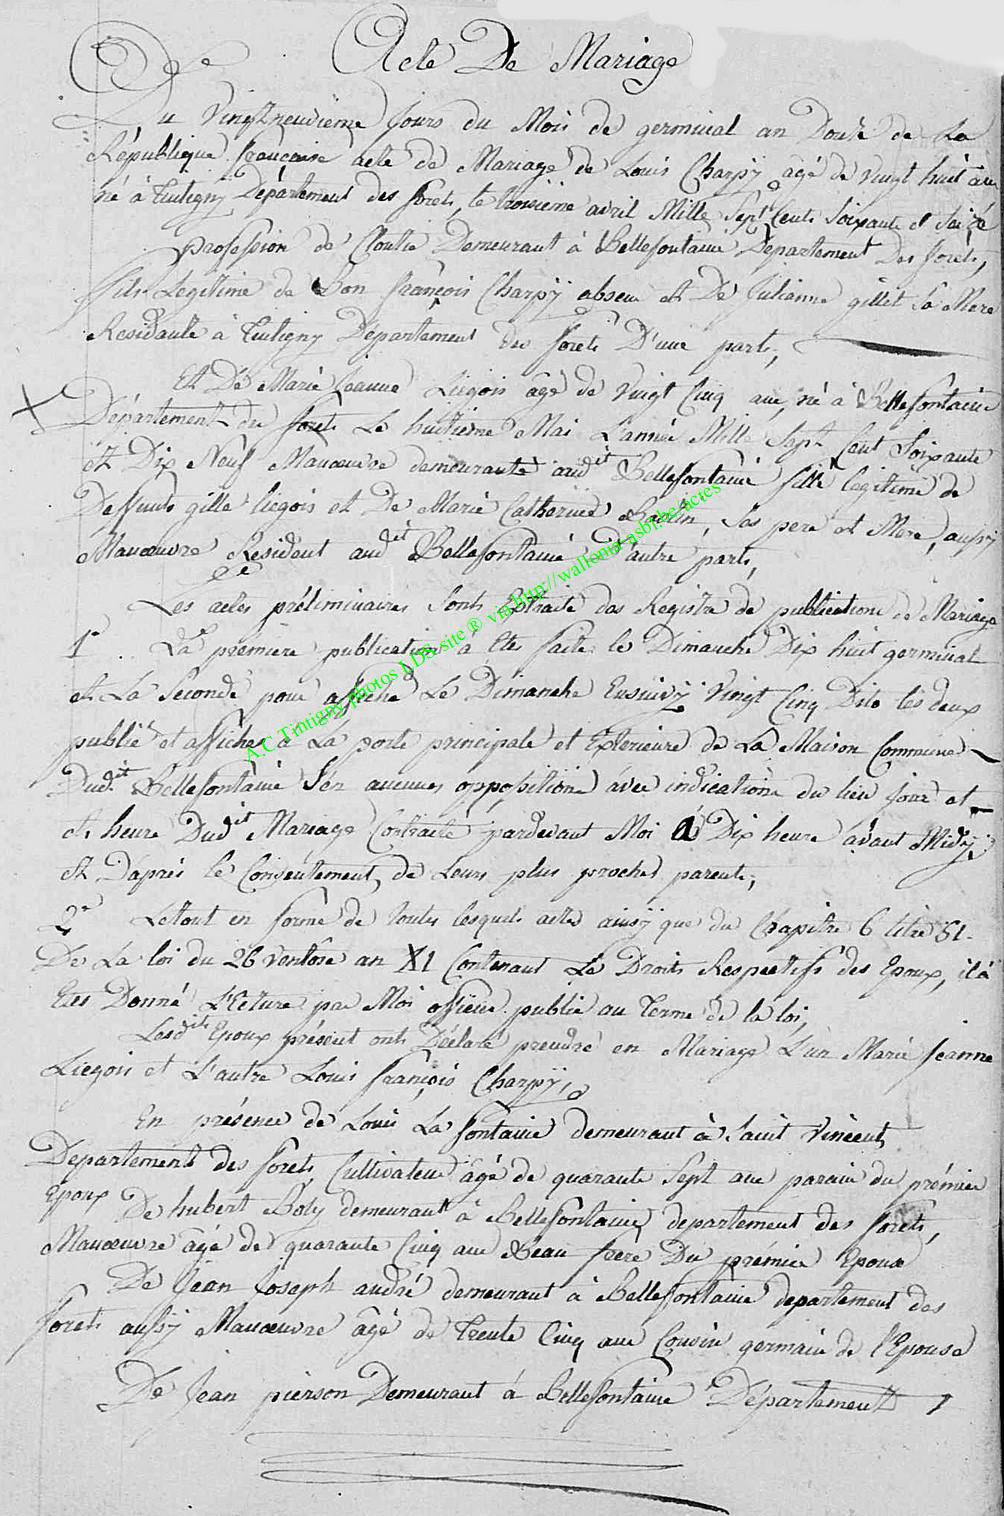 Acte De Mariage
Du Vingtneuvieme Jours du Mois de germinal an Douse de La
République française acte de Mariage de Louis Charpÿ agé de vingt huit ans
né à Tintigny Département des forets, le troisieme avril Mille Sept Cents Soixante et Saize
profession de Cloutie Demeurant à Bellefontaine Département Des forets,
fils Legitime de Don françois Charpÿ absen et De Julienne gillet Sa Mere
Residante à Tintigny Departement des forets D'une part,
Et De Marie Jeanne Liegois agé de Vingt Cinq ans, né à Bellefontaine
Département des forets Le huitieme Mai L'année Mille Sept Cent Soixante
et Dix Neuf Manœuvre demeurante audit Bellefontaine fille legitime de
Deffunts gille liegois et De Marie Catherine Baclin, Ses pere et Mere, aussy
Manœuvre Resident audit Bellefontaine d'autre part,
Les actes préliminaires Sont Extraits des Registre de publication de Mariage
1e La premiere publication à Etés faite le Dimanche Dix huit germinal
et La Seconde pour affiche Le Dimanche Ensuivÿ Vingt Cinq Dito les deux
publié et affiches à La porte principale et Exterieure de La Maison Commune
Dudit Bellefontaine S'en aucunes oppositions avec indications du lieu jour et
et heure Dudit Mariage Contracté pardevant Moi à Dix heure avant Midÿ
Et D'aprés le Consentement de Leurs plus proches parents;
2e Le tout en forme de toutes lesquels actes ainsÿ que du Chapitre 6 titre 51
De La loi du 26 Ventôse an XI Contenant Le Droits Respectifs des Epoux, il à
Etes Donné L'Ecture par Moi officier public au Terme de la loi,
Lesdits Epoux présent onts Déclaré prendre en Mariage L'un Marie Jeanne
Liegois et L'autre Louis françois Charpÿ,
En présence de Louis La fontaine demeurant à Saint Vincent,
Departement des forets, Cultivateur âgé de quarante Sept ans parain du prémier
Epoux De hubert Boly demeurant à Bellefontaine, departement des forets,
Manœuvre âgé de quarante Cinq ans Beau frere Du prémier Epoux
De Jean Joseph andré demeurant à Bellefontaine departement des
forets aussÿ Manœuvre agé de Trente Cinq ans Cousin germain de l'Epouse
De Jean pierson Demeurant à Bellefontaine Département
A.C Tintigny photos LDS site ® via http://wallonia-asbl.be/actes